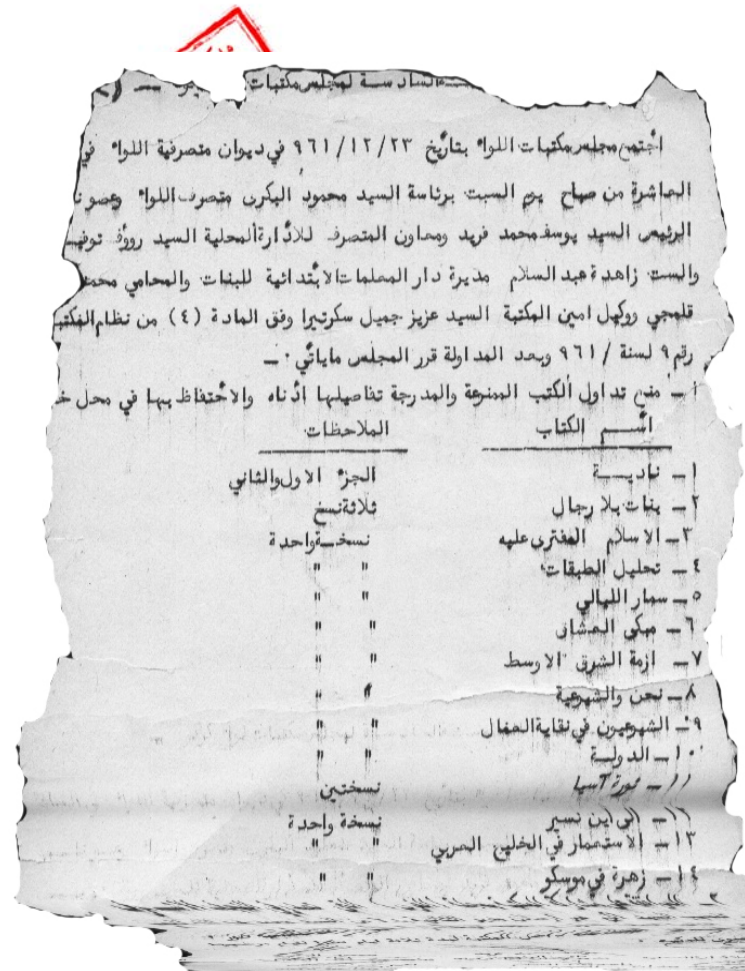 السادسة لمجلس مكتبات
اجتمع مجلس مكتبات اللواء بتاريخ ٩٦١/١٢/٢٣ في ديوان متصرفية اللواء في
العاشرة من صباح يوم السبت برئاسة السيد محمود البكري متصرف اللواء وعضو
الرئيس السيد يوسف محمد فريد ومعاون المتصرف للأدارة المحلية السيد رووف
والست زاهدة عبد السلام مديرة دار المعلمات الابتدائية للبنات والمحامي
قلمجي ووكيل امين المكتبة السيد عزيز جميل سكرتيرا وفق المادة (٤) من نظام
رقم ٩ لسنة /٩٦١ وبعد المداولة قرر المجلس ماياتي ٠ ــ
١ــ منع تداول ألكتب الممنوعة والمدرجة تفاصيلها أدناه والاحتفاظ بها في محل
اسم الكتاب الملاحظات
١ــ ناديــة الجزء الاول والثاني
٢ــ بنات بلا رجال ثلاثة نسخ
٣ــ الاسلام المفترى عليه نسخــة واحدة
٤ــ تحليل الطبقات " "
٥ــ سمار الليالي " "
٦ــ مبكى العشاق " "
٧ــ ازمة الشرق الاوسط " "
٨ــ نحن والشيوعية " "
٩ــ الشيوعيون في نقابة العمال " "
١٠ــ الدولــة " "
١١ــ ثورة آسيا نسختين
١٢ــ الى اين نسير نسخة واحدة
١٣ــ الاستعمار في الخليج العربي " "
١٤ــ زهرة في موسكو " "